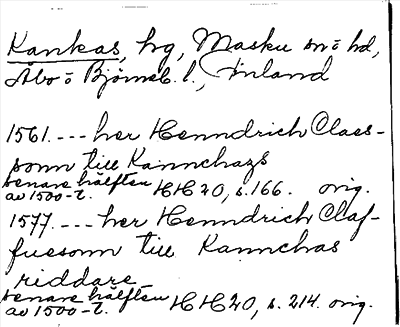 Kankas, hg, Masku sn o hd,
Åbo o Björneb. l., Finland
1561. --- her Henndrich Claes-
sonn till Kannchazs
senare hälften
av 1500-t. HH 20, s. 166. orig.
1577. --- her Henndrich Claf-
fuesonn till Kannchas
riddare
senare hälften
av 1500-t. HH 20, s. 214. orig.